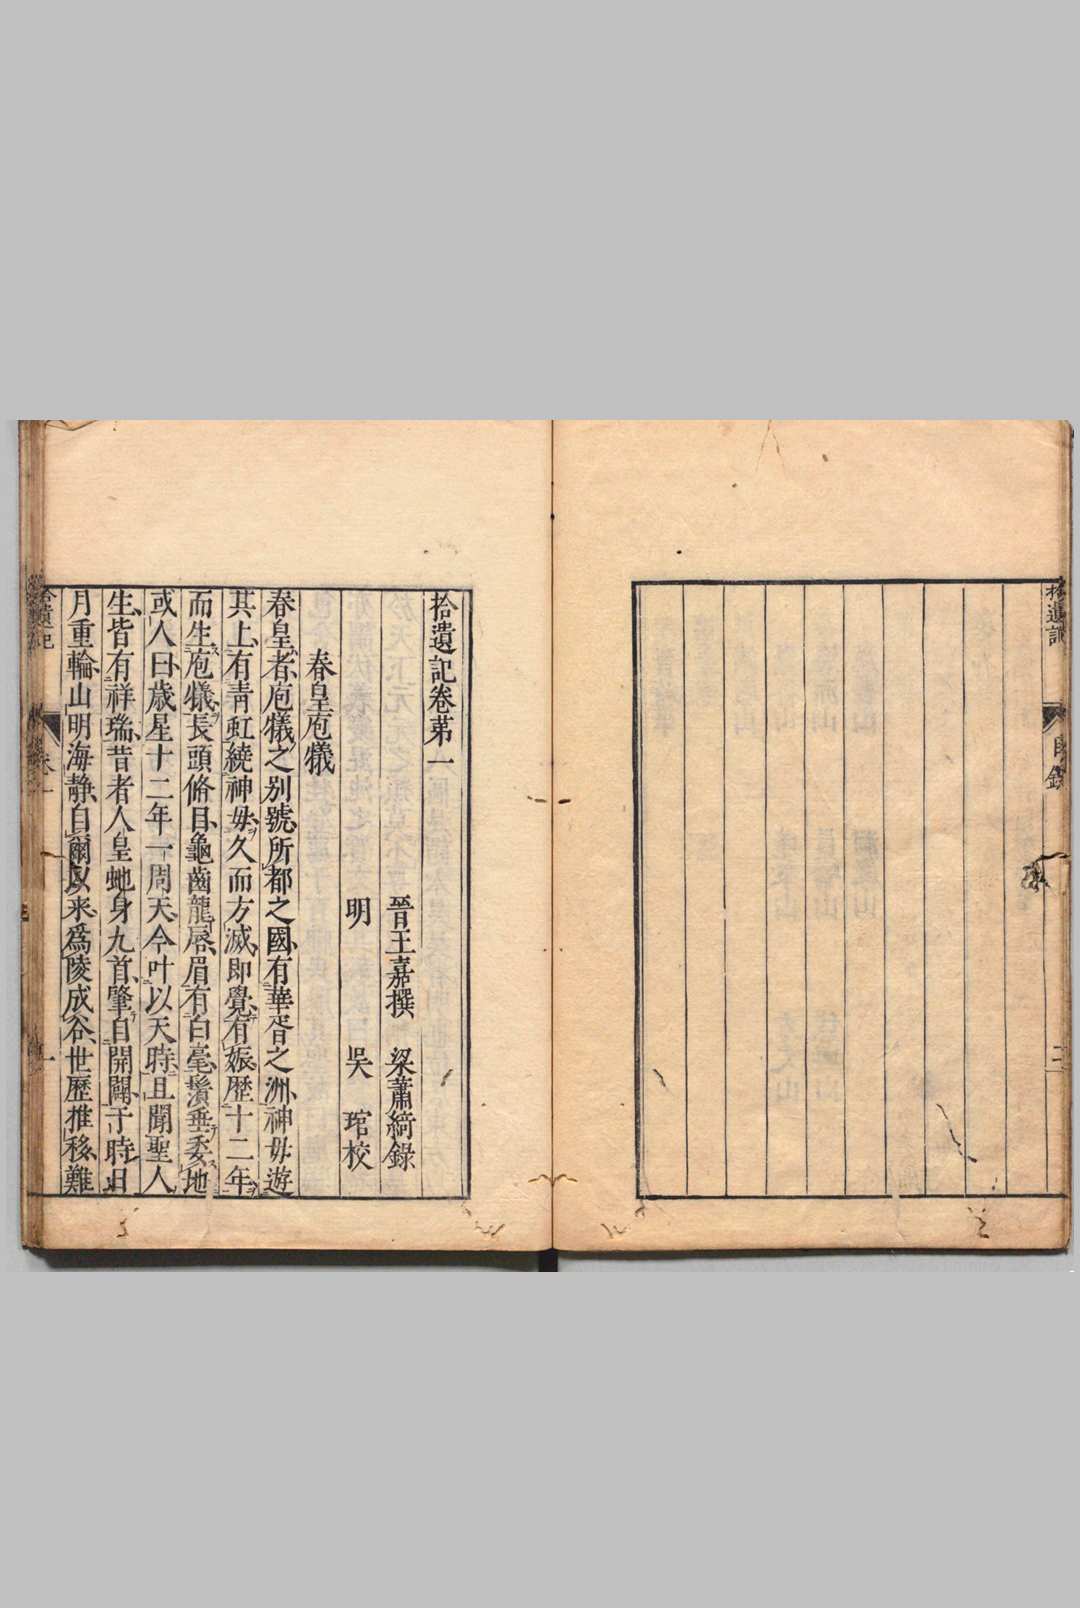 拾遺記
目錄
二
拾遺記卷苐一
晉王嘉撰　梁蕭綺錄
明　吳琯校
春皇庖犧
春皇者庖犧之别號所都之國有華胥之洲神毋遊
其上有靑虹繞神毋久而方滅即覺有娠歴十二年
而生庖犧長頭脩目龜齒龍唇眉有白毫鬚垂委地
或人曰歲星十二年一周天今叶以天時且聞聖人
生皆有祥瑞昔者人皇虵身九首肇自開闢于時日
月重輪山明海静自爾以來爲陵成谷世歷推移難
拾遺記
卷一
一